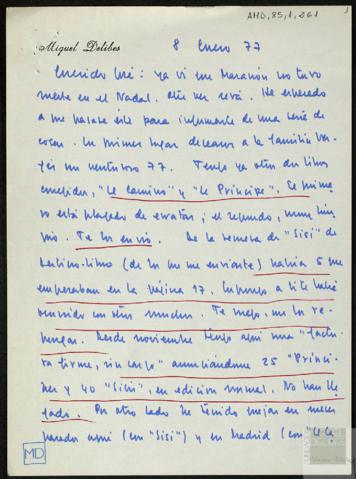 AMD,85,1,261
Miguel Delibes
8 Enero 77
Querido José: ya vi que Marañón no tuvo
suerte en el Nadal. Otra vez será. He esperado
a que pasase este para informarte de una serie de
cosas. En primer lugar desearos a la familia Ver-
gés un venturoso 77. Tengo ya otros dos libros
corregidos, "El camino" y "El Príncipe". El prime-
ro está plagado de erratas; el segundo, muy lim-
pio. Te los envío. De la remesa de "Sisí" de
Destino-libro (de los que me enviaste) había 5 que
empezaban en la página 17. Supongo a ti te habrá
ocurrido con otros muchos. Te ruego me los re-
pongas. Desde noviembre tengo aquí una "factu-
ra firme, sin cargo" anunciándome 25 "Prínci-
pes" y 40 "Sisí", en edición normal. No han lle-
gado. Por otro lado he tenido quejas en
aquí (con "Sisí") y en Madrid (con "El
MD